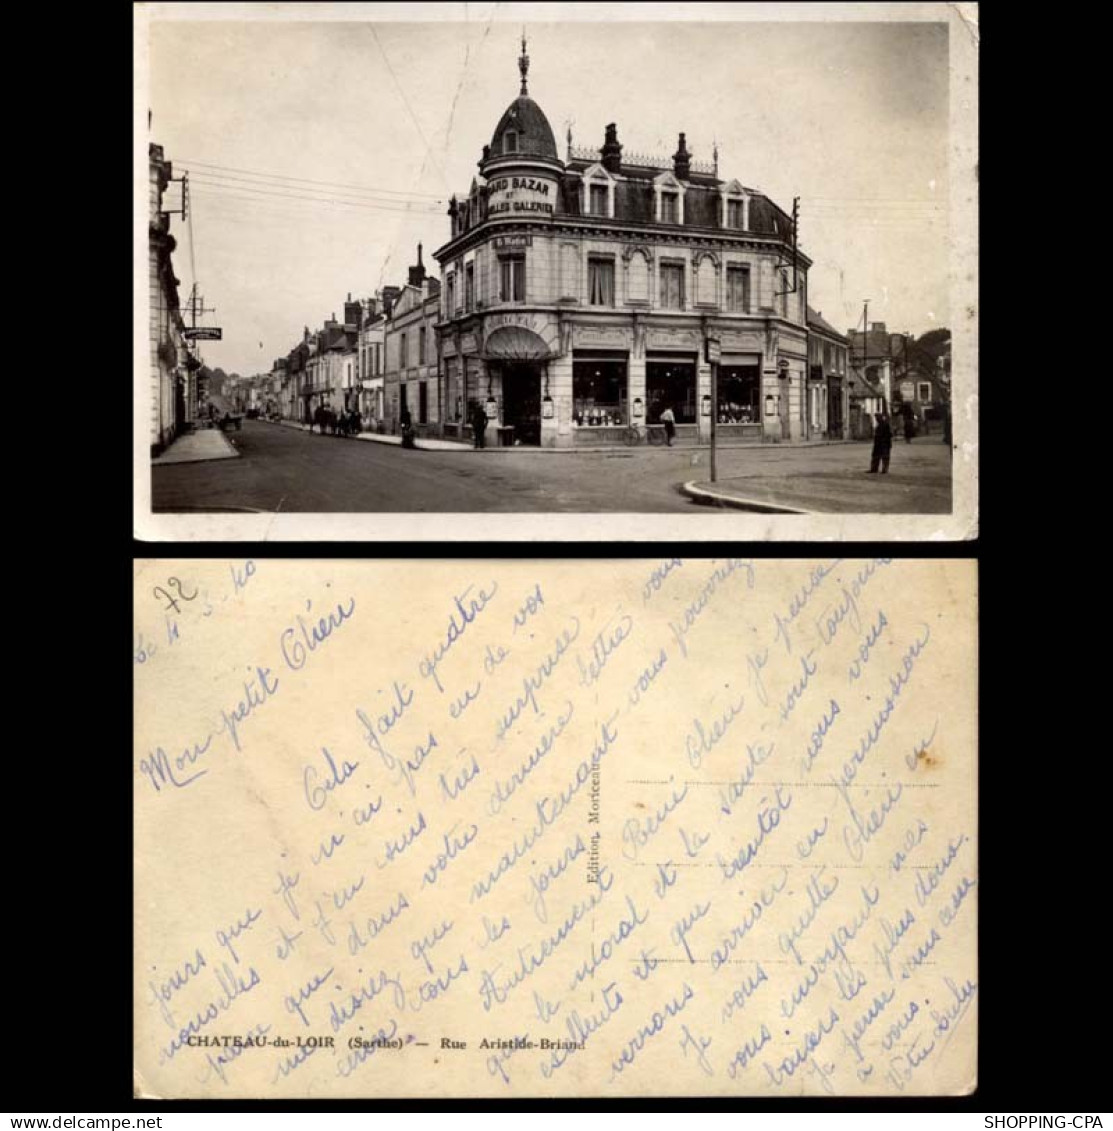 GRAND BAZAR
ET
NOUVELLES GALERIES
72
Le 4-3-40
Mon petit Chéri
Cela fait quatre
jours que je n'ai pas eu de vos
nouvelles et j'en suis très surprise
parce que dans votre dernière lettre vous
me disiez que maintenant vous pouviez
écrire tous les jours.
Autrement René Chéri je pense
que le moral et la santé sont toujours
excellents et que bientôt nous vous
verrons arriver en permission
Je vous quitte Chéri en
vous envoyant mes
baisers les plus doux.
Je pense sans cesse
à vous.
Votre Lulu
Edition Moriceau
CHATEAU-du-LOIR (Sarthe) — Rue Aristide-Briand
SHOPPING-CPA